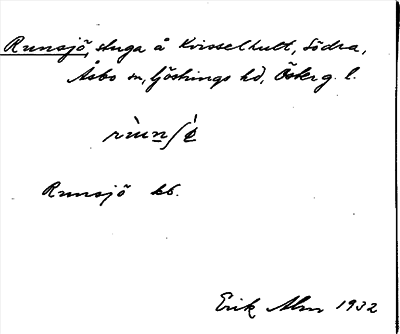 Runsjö, stuga å Kvisselhult, Södra,
Åsbo sn, Göstrings hd, Österg. l.
Runsjö kb.
Erik Alm 1932